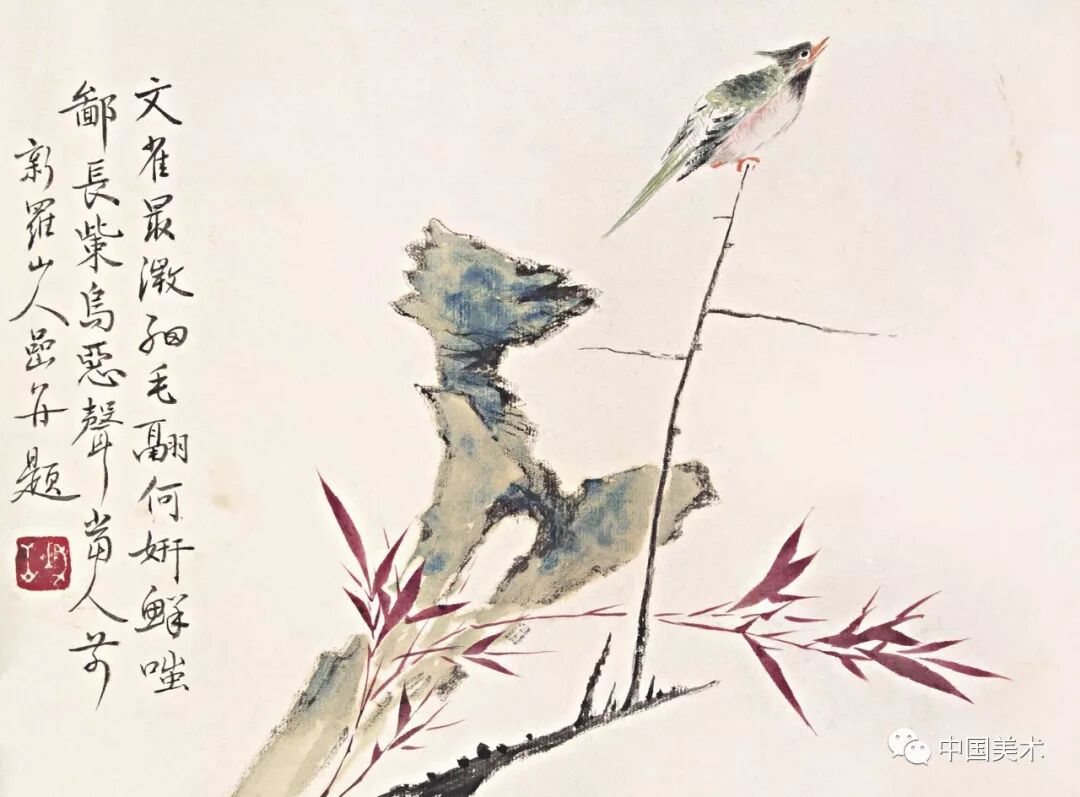 文雀最微細毛翮何妍鮮嗤
鄙長柴烏惡聲當人前
新羅山人嵒并題
中国美术